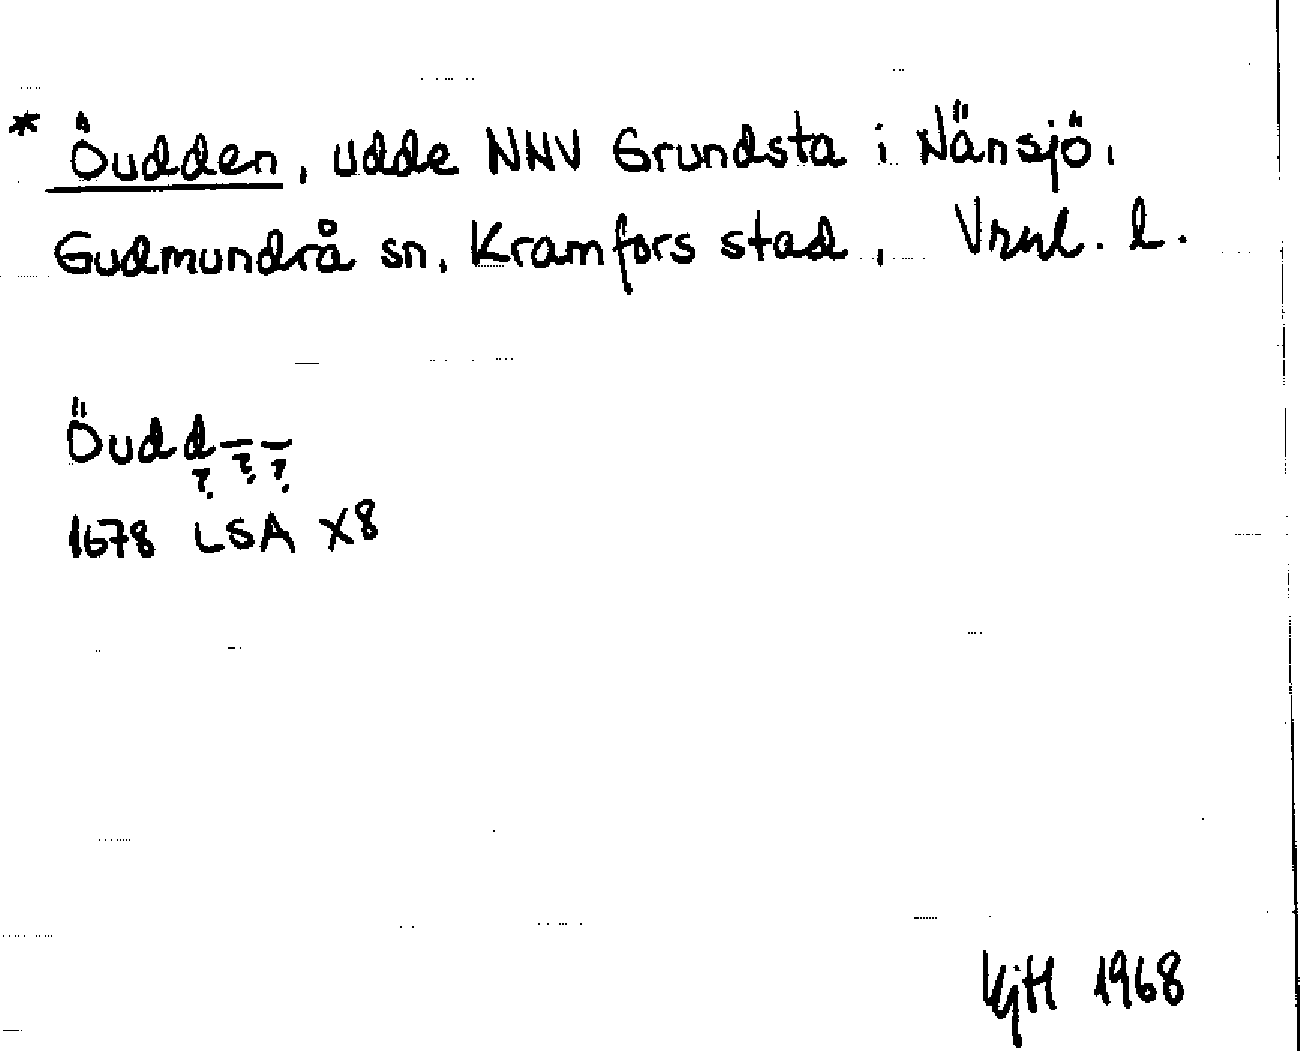 * Öudden, udde NNV Grundsta i Nänsjö,
Gudmundrå sn, Kramfors stad, Vrnl. l.
Öudd--
? ? ?
1678 LSA X8
KjH 1968